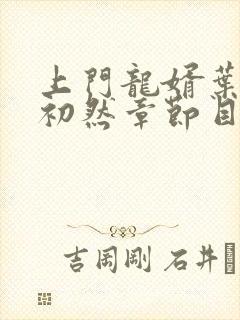 上門龍婿葉
初然章節目
吉岡剛 石井